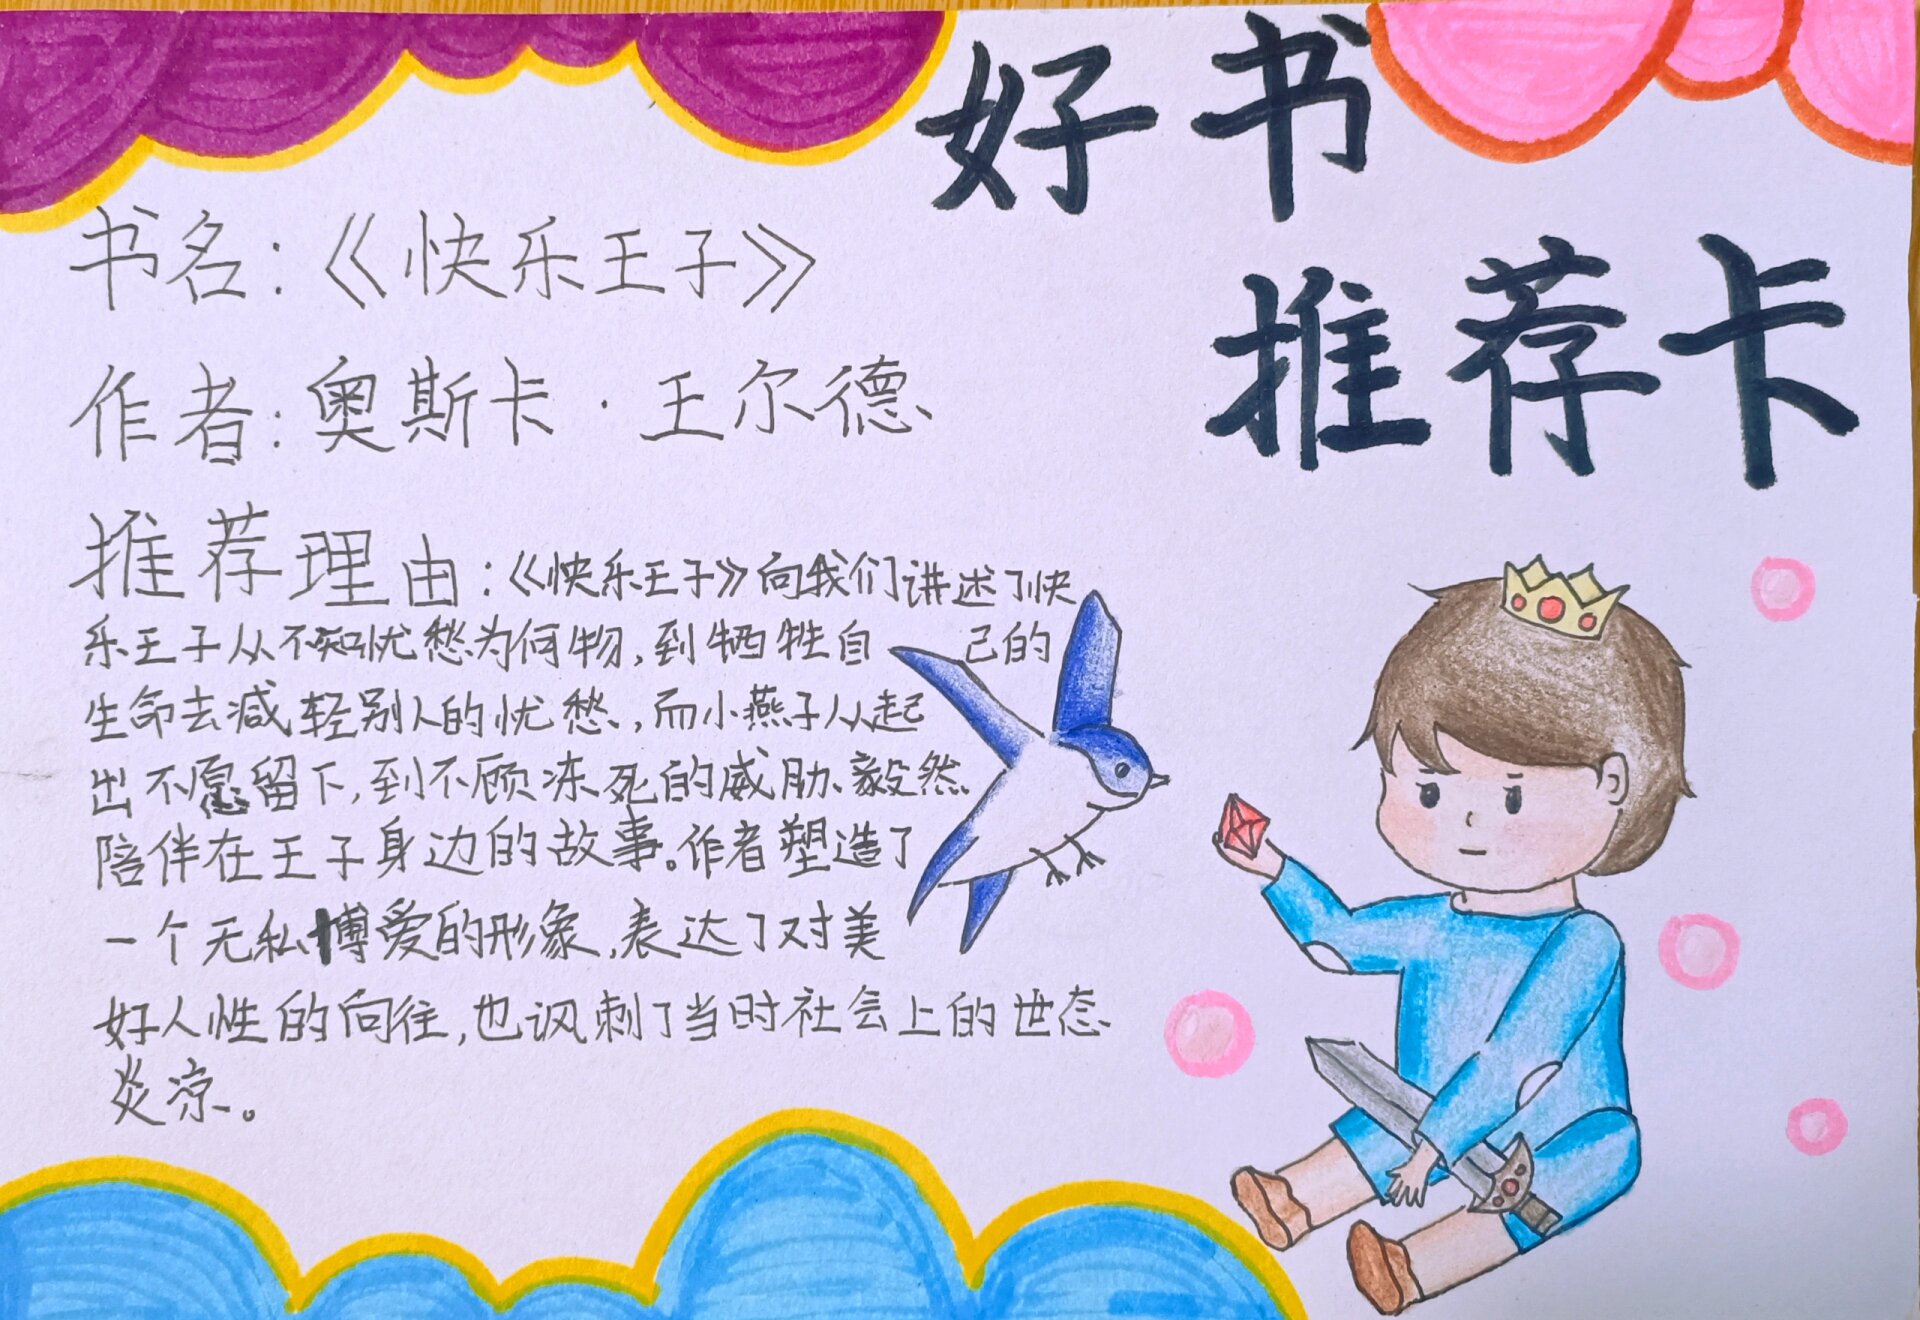 好书
推荐卡
书名：《快乐王子》
作者：奥斯卡·王尔德
推荐理由：《快乐王子》向我们讲述了快
乐王子从不知忧愁为何物，到牺牲自己的
生命去减轻别人的忧愁，而小燕子从起
出不愿留下，到不顾冻死的威胁、毅然
陪伴在王子身边的故事。作者塑造了
一个无私博爱的形象，表达了对美
好人性的向往，也讽刺了当时社会上的世态
炎凉。